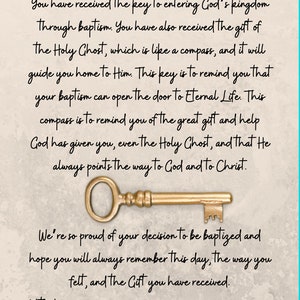 You have received the key to entering God's kingdom
through baptism. You have also received the gift of
the Holy Ghost, which is like a compass, and it will
guide you home to Him. This key is to remind you that
your baptism can open the door to Eternal Life. This
compass is to remind you of the great gift and help
God has given you, even the Holy Ghost, and that He
always points the way to God and to Christ.
We're so proud of your decision to be baptized and
hope you will always remember this day, the way you
felt, and the Gift you have received.